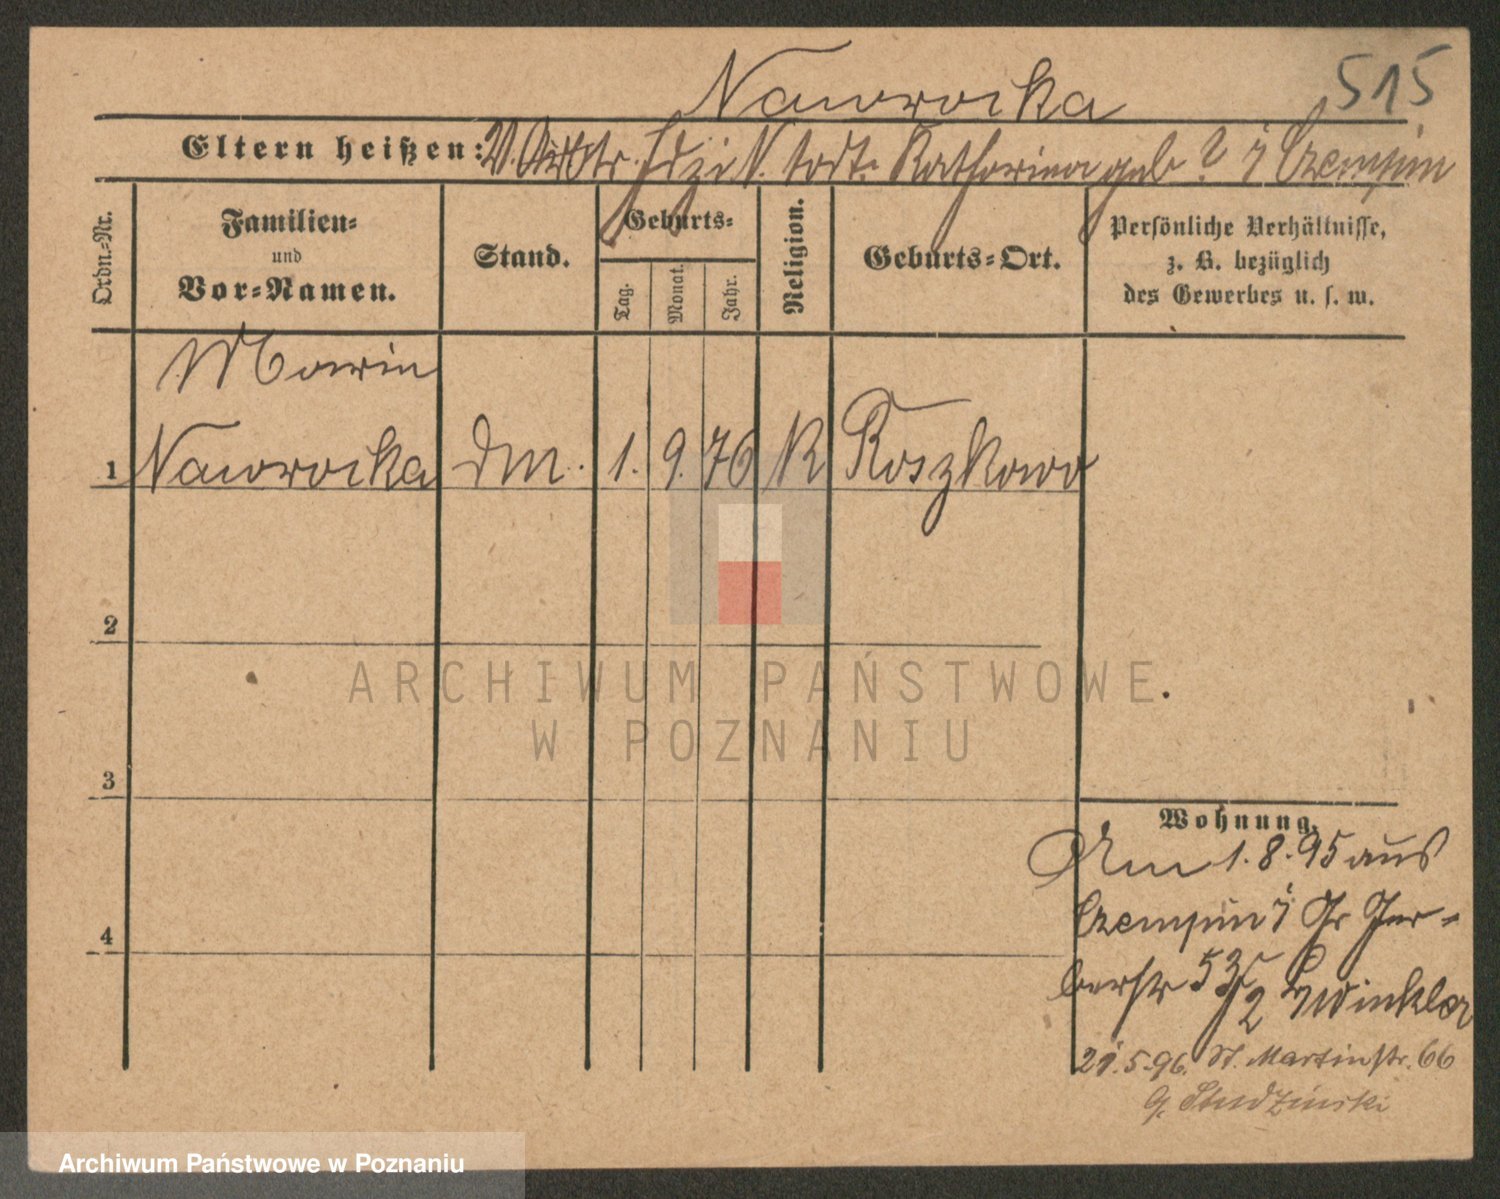 515
Nawrocka
Eltern heißen: V. Arbtr. Idzi N. todt. Katharina geb ? i Czempin
Ordn.-Nr.
Familien-
und
Vor-Namen.
Stand.
Geburts-
Tag.
Monat.
Jahr.
Religion.
Geburts-Ort.
Persönliche Verhältnisse,
z. B. bezüglich
des Gewerbes u. s. w.
Marie
1 Nawrocka dm. 1. 9. 76 K Koszkowo
2
3
4
Wohnung.
Am 1. 8. 95 aus
Czempin i Gr Ger-
berstr 53 2 Winkler
21. 5. 96. St. Martinstr. 66
Studzinski
ARCHIWUM PAŃSTWOWE
W POZNANIU
Archiwum Państwowe w Poznaniu